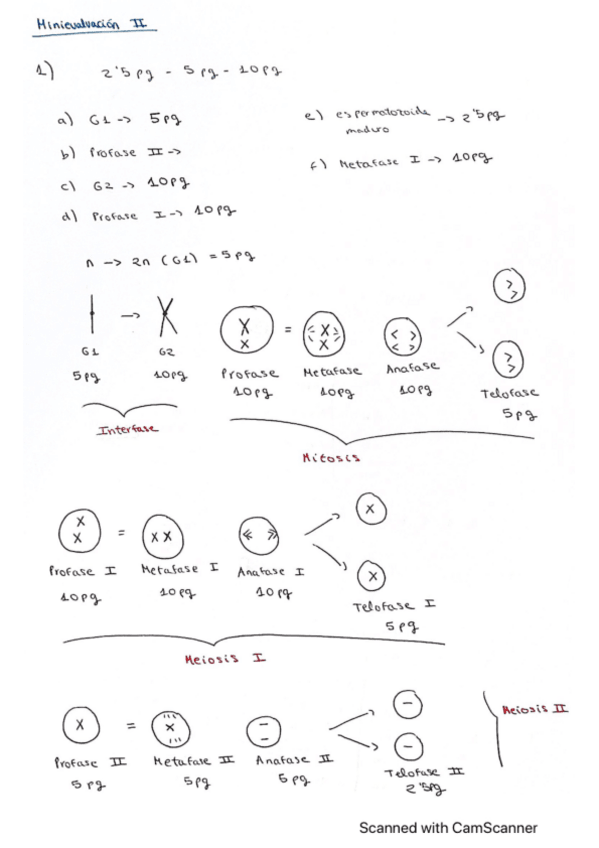 Minievaluación II
1) 2'5pg - 5pg - 10pg
a) G1 -> 5pg
b) Profase II ->
c) G2 -> 10pg
d) Profase I -> 10pg
e) espermatozoide maduro -> 2'5pg
f) Metafase I -> 10pg
n -> 2n (G1) = 5pg
G1 G2
5pg 10pg
Interfase
Profase = Metafase Anafase
10pg 10pg 10pg
Telofase
5pg
Mitosis
Profase I = Metafase I Anafase I
10pg 10pg 10pg
Telofase I
5pg
Meiosis I
Meiosis II
Profase II = Metafase II Anafase II
5pg 5pg 5pg
Telofase II
2'5pg
Scanned with CamScanner